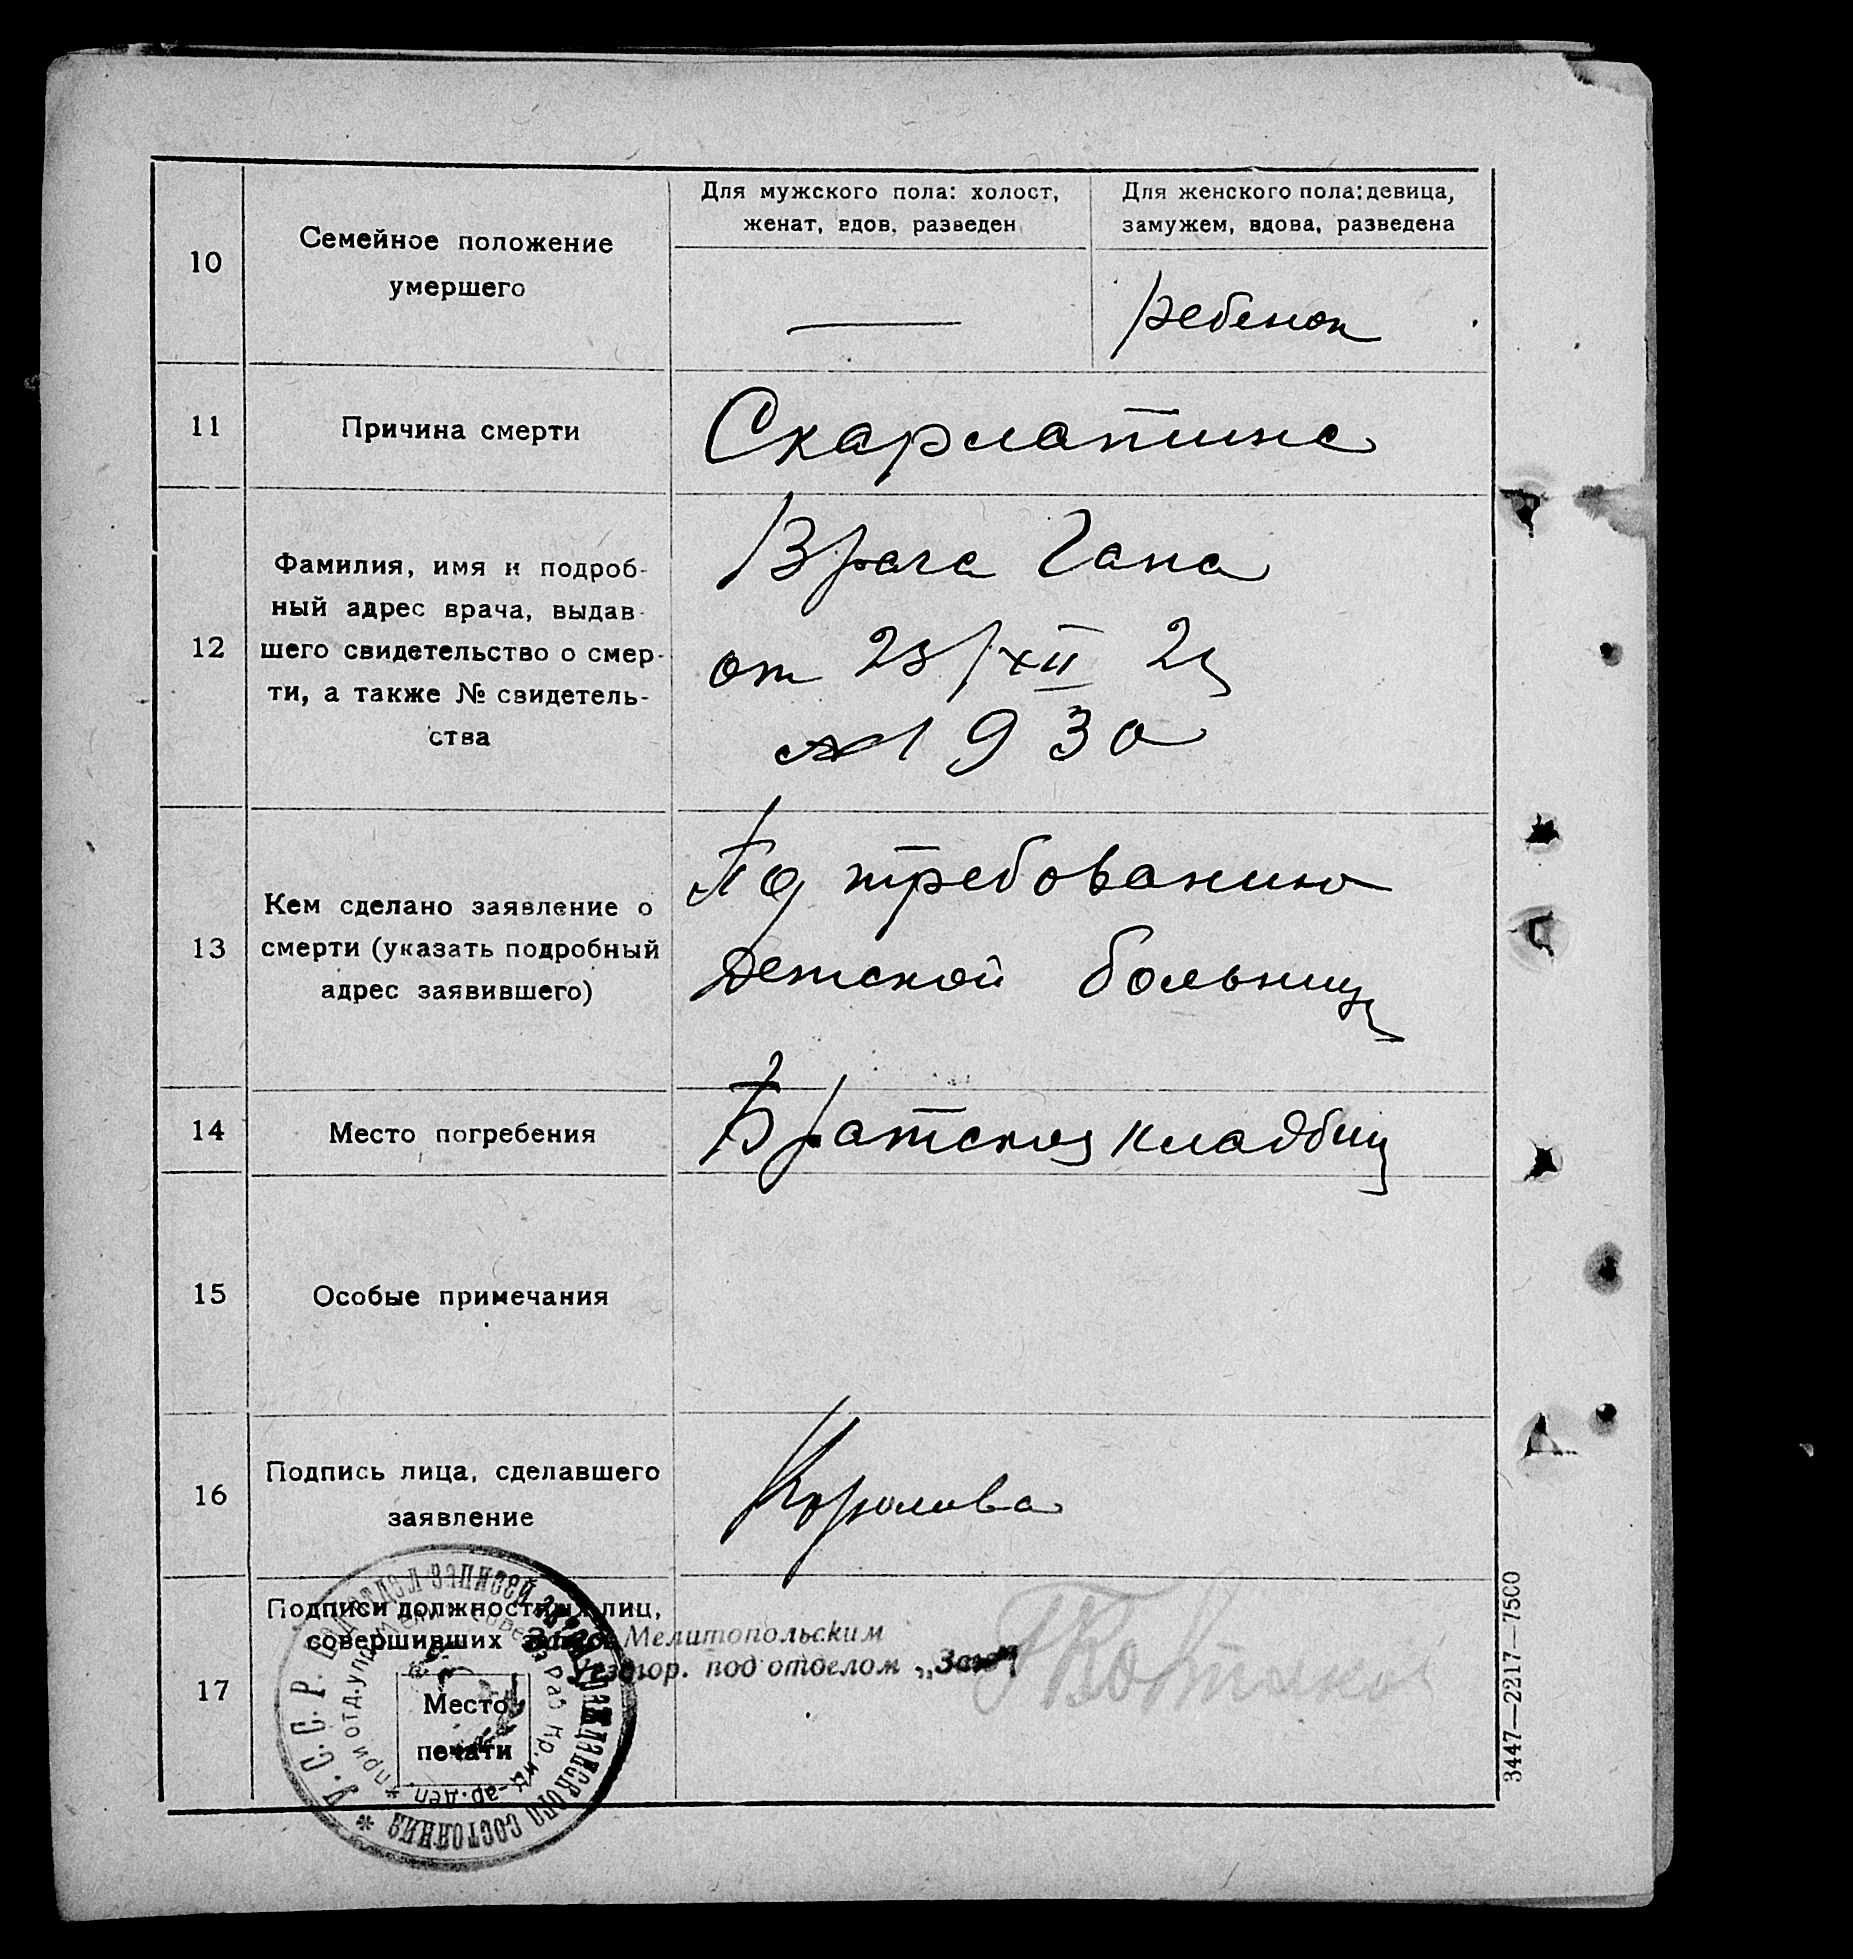 10
Семейное положение
умершего
Для мужского пола: холост,
женат, вдов, разведен
Для женского пола: девица,
замужем, вдова, разведена
—
ребенок
11
Причина смерти
Скарлатина
12
Фамилия, имя и подроб-
ный адрес врача, выдав-
шего свидетельство о смер-
ти, а также № свидетель-
ства
Врача Гана
от 23/XII 2
№ 930
13
Кем сделано заявление о
смерти (указать подробный
адрес заявившего)
По требованию
детской больниц
14
Место погребения
Братское кладбищ
15
Особые примечания
16
Подпись лица, сделавшего
заявление
Королева
17
Подписи должностных лиц,
совершивших запись
Место
печати
Мелитопольским
Уезгор. под отделом „Загс"
У.С.С.Р. Подотдел записей гражданского состояния
3447—2217—7500